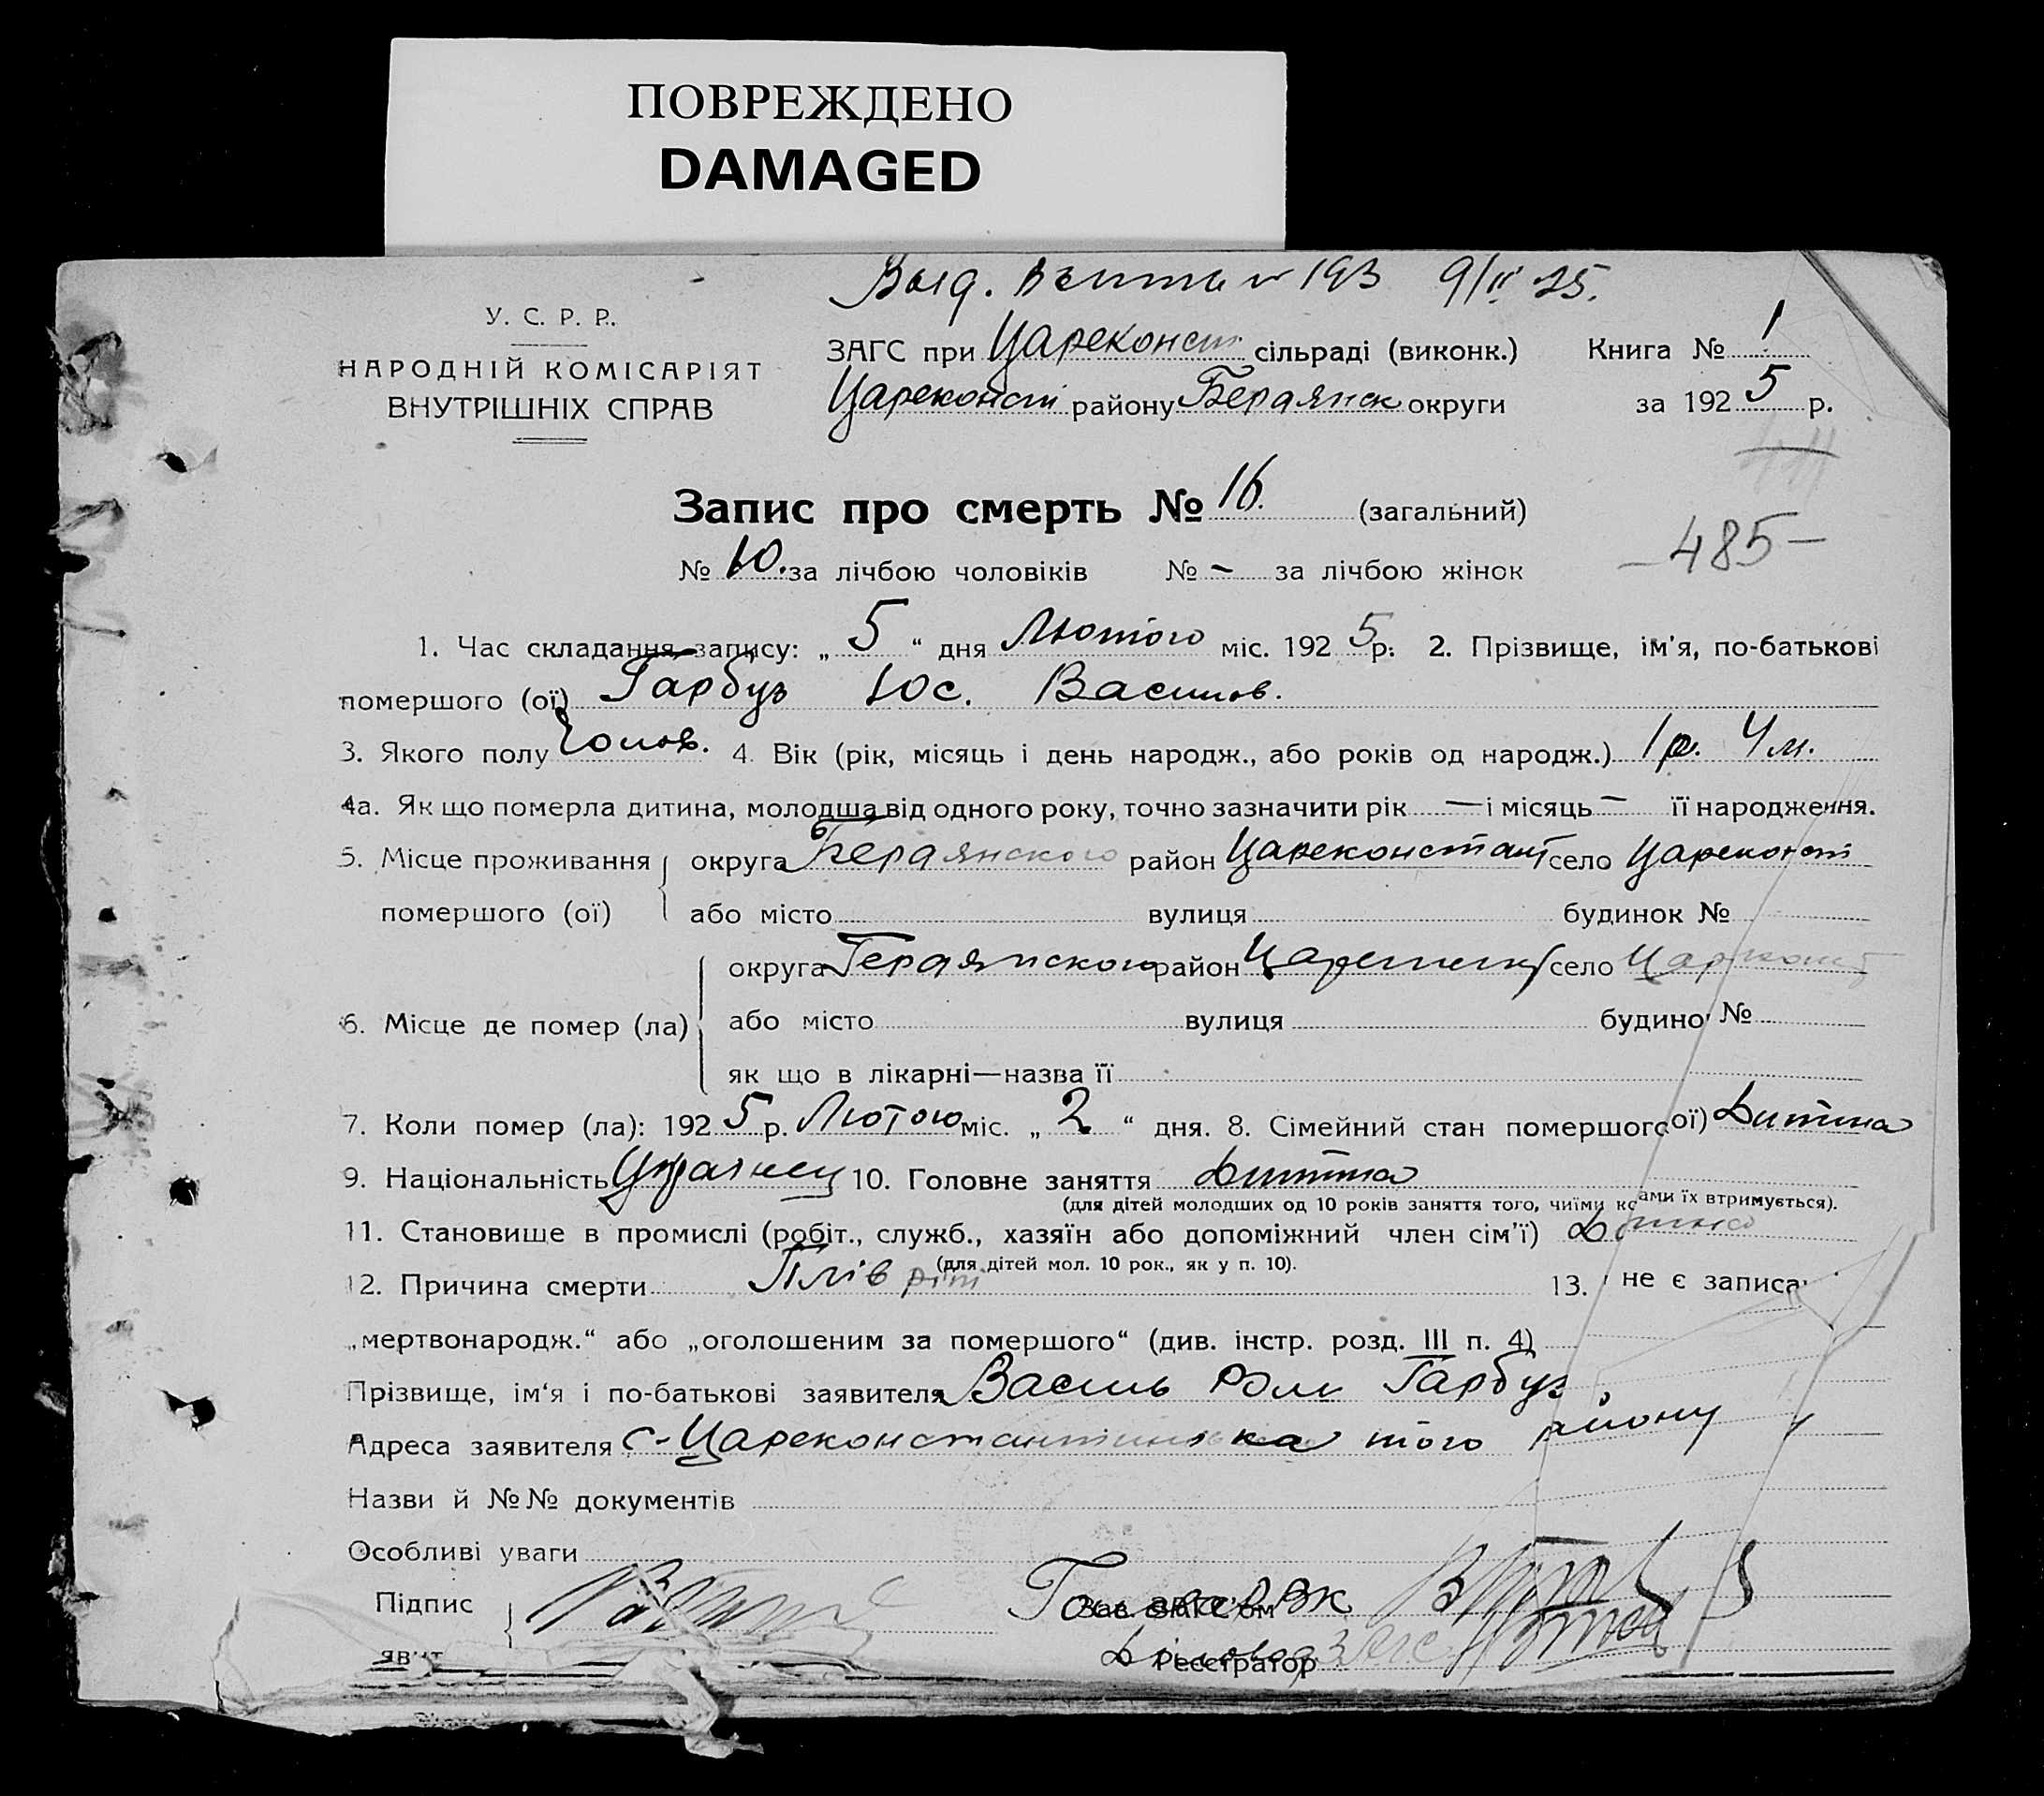 ПОВРЕЖДЕНО
DAMAGED
193 9/II 25.
У. С. Р. Р.
НАРОДНІЙ КОМІСАРІЯТ
ВНУТРІШНІХ СПРАВ
ЗАГС при Цареконст сільраді (виконк.) Книга № 1
Цареконст району Бердянск округи за 1925 р.
Запис про смерть № 16. (загальний)
№ 10. за лічбою чоловіків № – за лічбою жінок
– 485 –
1. Час складання запису: „ 5 “ дня Лютого міс. 1925 р. 2. Прізвище, ім'я, по-батькові
помершого (ої) Гарбуз Юс. Васильов.
3. Якого полу Чолов. 4. Вік (рік, місяць і день народж., або років од народж.) 1 р. 4 м.
4а. Як що померла дитина, молодша від одного року, точно зазначити рік — і місяць – її народження.
5. Місце проживання округа Бердянского район Цареконстант село Цареконст
помершого (ої) або місто вулиця будинок №
округа Бердянского район село Царконст
6. Місце де помер (ла) або місто вулиця будино №
як що в лікарні—назва її
7. Коли помер (ла): 1925 р. Лютого міс. „ 2 “ дня. 8. Сімейний стан помершого ої) Дитина
9. Національність Украінец 10. Головне заняття Дитина
(для дітей молодших од 10 років заняття того, чиїми ко ами їх втримується).
11. Становище в промислі (робіт., служб., хазяїн або допоміжний член сім'ї) Дитина
(для дітей мол. 10 рок., як у п. 10).
12. Причина смерти 13. не є запис
„мертвонародж.“ або „оголошеним за помершого“ (див. інстр. розд. III п. 4)
Прізвище, ім'я і по-батькові заявителя Василь Ром Гарбуз
Адреса заявителя с-Цареконстантиновка того району
Назви й №№ документів
Особливі уваги
Підпис Зав. ЗАГС'ом
явит Реєстратор